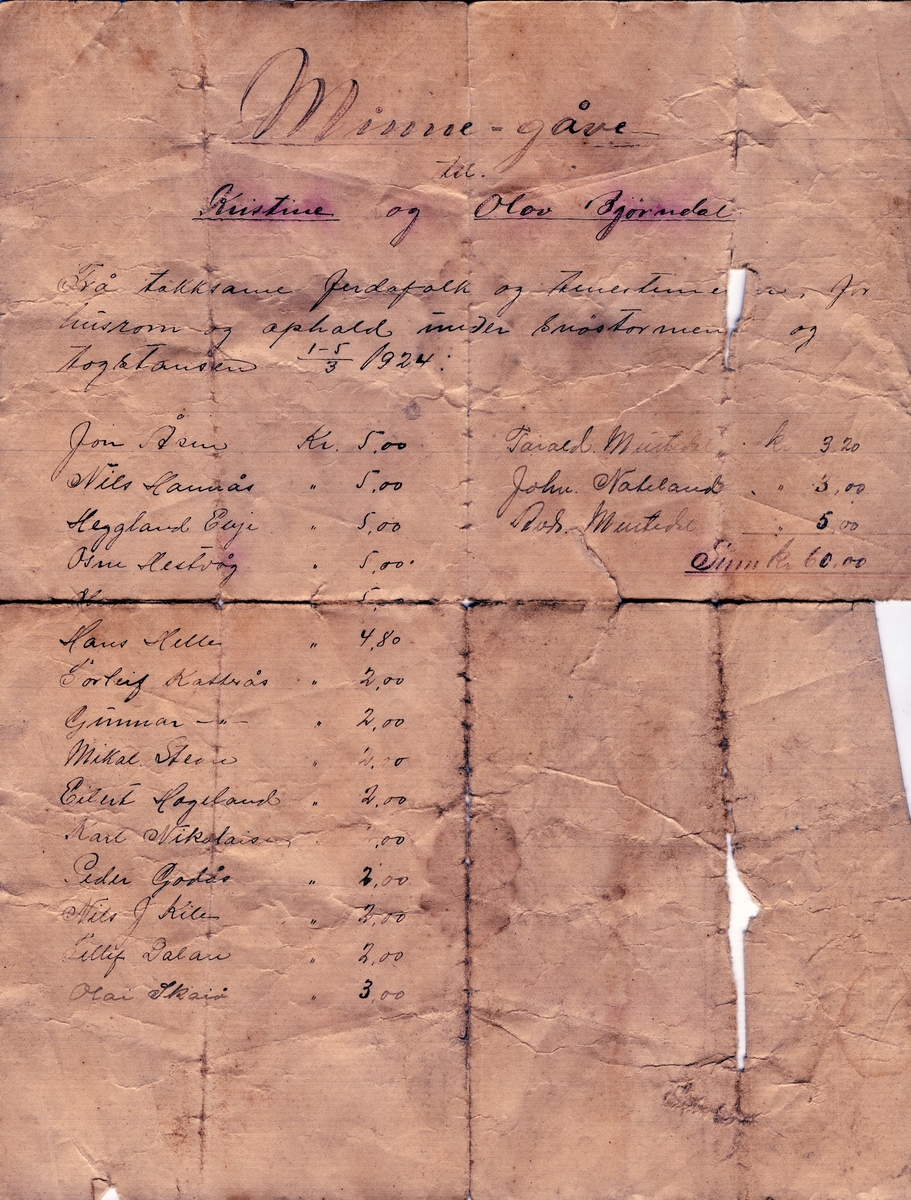 Minne-gåve
til.
Kristine og Olov Bjørndal.
Frå takksame ferdafolk og for
husrom og ophald under snøstormen og
togstansen 1-5/3 1924:
Jon Åsen Kr. 5,00
Nils Hannås " 5,00
Heggland Evje " 5,00
Hestvåg " 5,00
5,00
Hans Helle " 4,80
Torleif Katterås " 2,00
Gunnar —"— " 2,00
Mikal Steon " 2,00
Eilert Hageland " 2,00
Karl Nikolaisen ,00
Peder Godås " 2,00
Nils J Kile " 2,00
Tellif Dalane " 2,00
Olai Skaiå " 3,00
Tarald kr 3,20
John. Nateland " 3,00
" 5,00
Sum kr 60,00